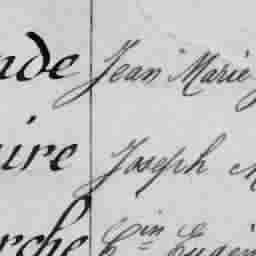 nde Jean Marie
uire Joseph M
rche Cin Eugèn